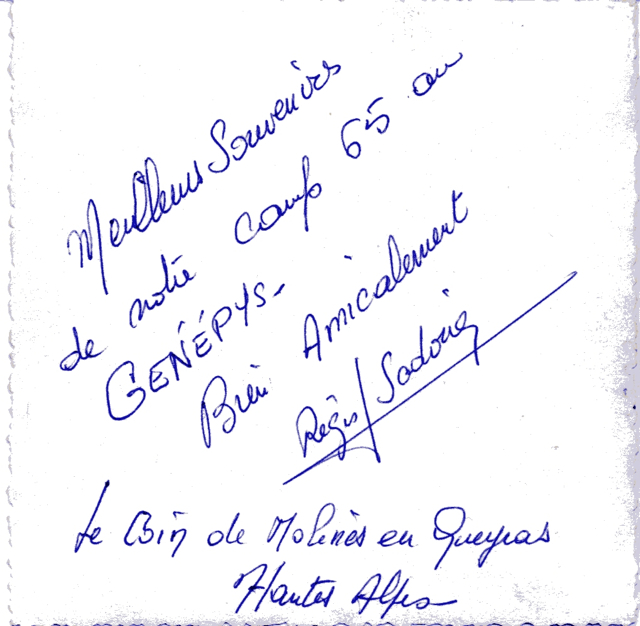 Meilleurs Souvenirs
de notre camp 65 au
GENÉPYS-
Bien Amicalement
Régis Sadoine
Le Coin de Molines en Queyras
Hautes Alpes